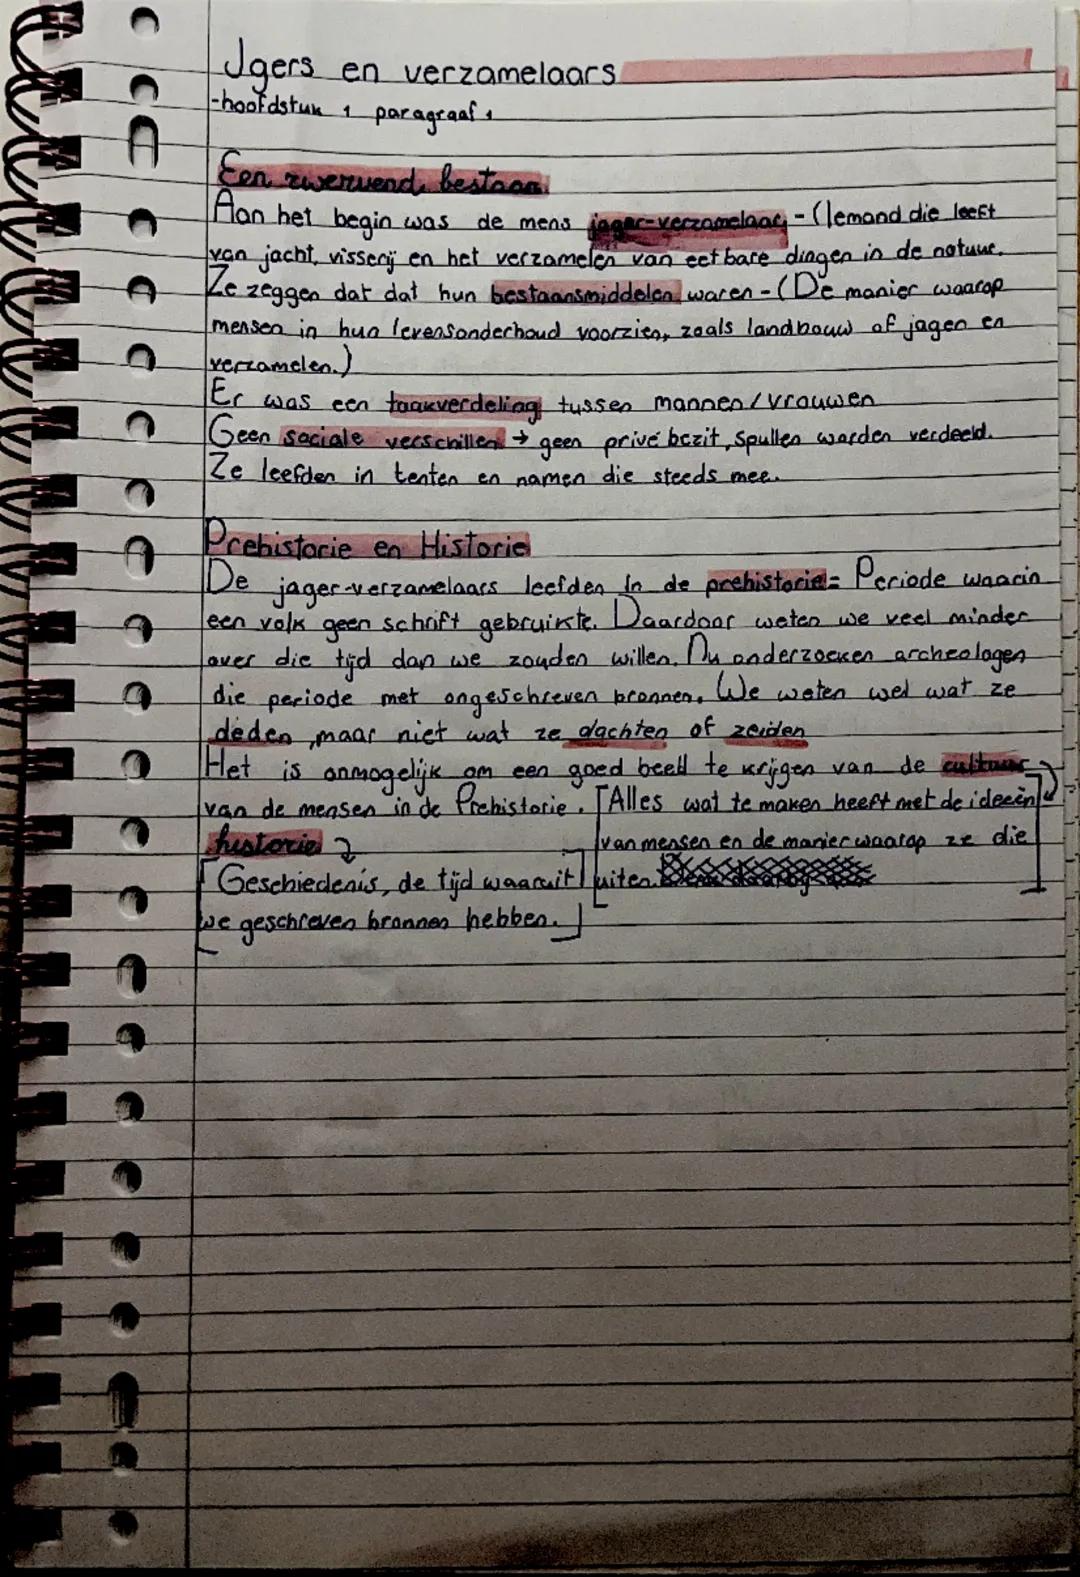 Jgers en verzamelaars
-hoofdstuk 1 paragraaf 1
Een zwervend bestaan.
Aan het begin was de mens jager-verzamelaar, - (Iemand die leeft
van jacht, visserij en het verzamelen van eetbare dingen in de natuur.
Ze zeggen dat dat hun bestaansmiddelen waren - (De manier waarop
mensen in hun levensonderhoud voorzien, zoals landbouw of jagen en
verzamelen.)
Er was een taakverdeling tussen mannen/vrouwen
Geen sociale verschillen → geen privé bezit, spullen worden verdeeld.
Ze leefden in tenten en namen die steeds mee.
Prehistorie en Historie
De jager-verzamelaars leefden in de prehistorie = Periode waarin
een volk geen schrift gebruikte. Daardoor weten we veel minder
over die tijd dan we zouden willen. Nu onderzoeken archeologen
die periode met ongeschreven bronnen. We weten wel wat ze
deden, maar niet wat ze dachten of zeiden
Het is onmogelijk om een goed beeld te krijgen van de cultuur
van de mensen in de Prehistorie. [Alles wat te maken heeft met de ideeën
historie ↴ van mensen en de manier waarop ze die
[Geschiedenis, de tijd waaruit] uiten.
we geschreven bronnen hebben.]